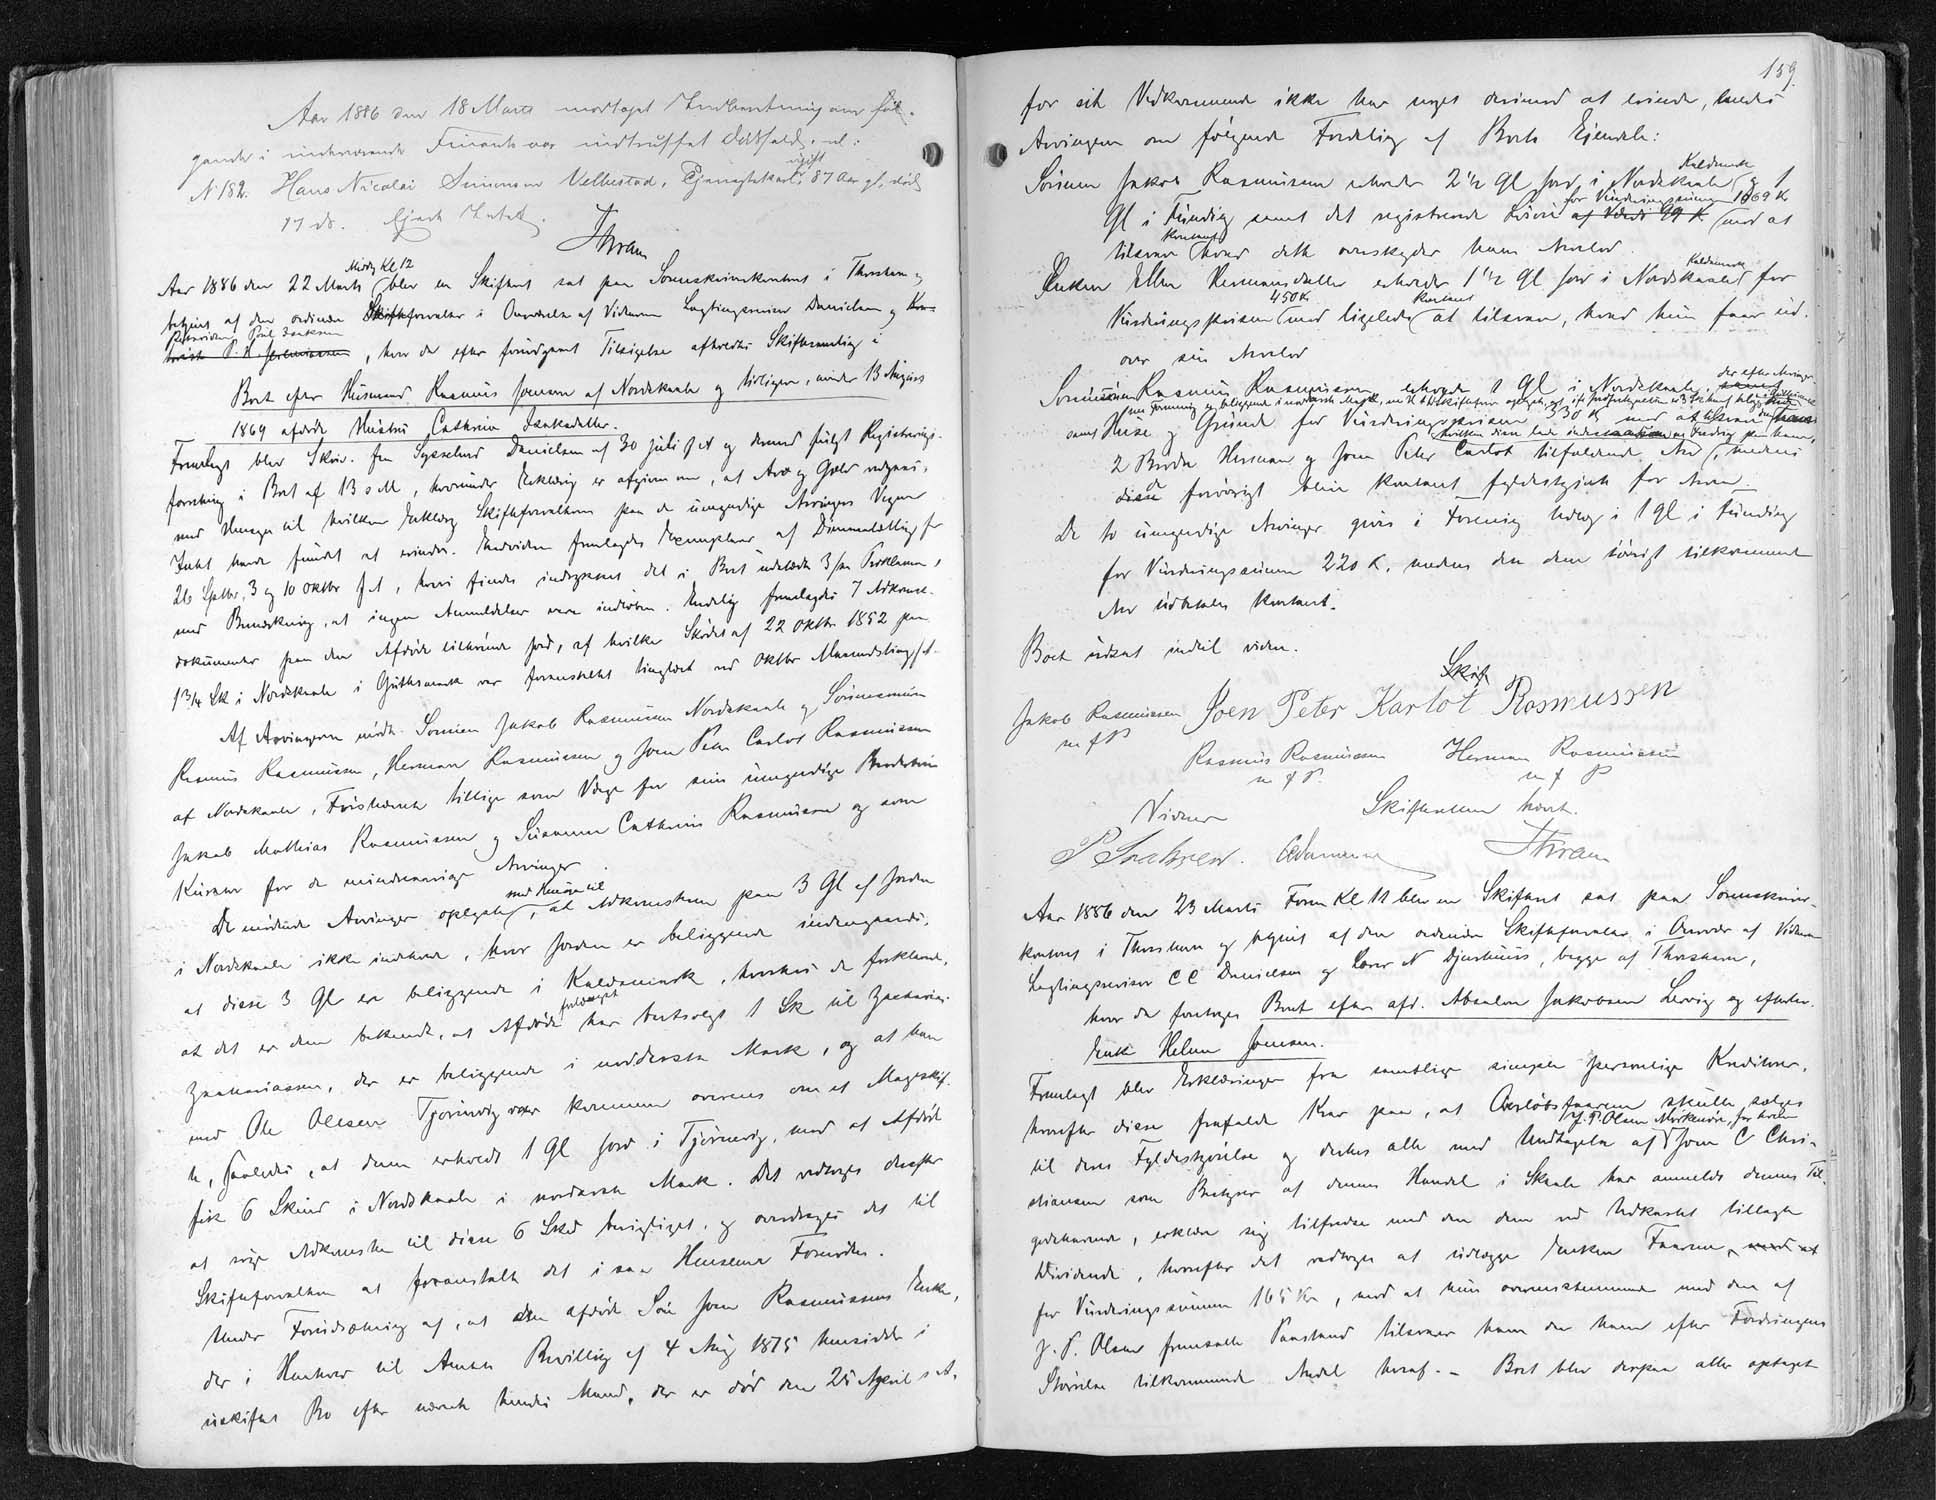 Aar 1886 den 18 Marts modtaget Indberetning om føl-
gende i nærværende Finants aar indtruffet Dødsfald, nl:
ugift
N 182. Hans Nicolai Simonsen Velbestad, Tjenestekarl, 87 Aar gl. død
17 ds. Ejede Intet.
Middg Kl 12
Aar 1886 den 22 Marts blev en Skifteret sat paa Sorenskriverkontoret i Thorshavn og
betjent af den ordinære Skifteforvalter i Overværelse af Vidnerne Lagtingsrevisor Danielsen og
, hvor da efter forudgaaet Tilsigelse afholdtes Skiftesamling i
Boet efter Husmand Rasmus Joensen af Nordskaale og tidligere, under 13 August
1869 afdøde Hustru Cathrina Isaksdatter.
Fremlagt blev Skriv. fra Sysselmd Danielsen af 30 Juli f A og dermed fulgt Registrerings-
forretning i Boet af 13 s M, hvorunder Erklæring er afgiven om, at Arv og Gæld vedgaaes,
med Hensyn til hvilken Erklæring Skifteforvalteren paa de umyndige Arvingers Vegne
Intet havde fundet at erindre. Endvidere fremlagdes Exemplarer af Dimmalætting for
26 Septbr, 3 og 10 Oktbr f A, hvori findes indrykket det i Boet udstedte 3/m Proklama,
med Bemærkning, at ingen Anmeldelser vare indløbne. Endelig fremlagdes 7 Adkomst-
dokumenter paa den Afdøde tilhørende Jord, af hvilke Skødet af 22 Oktbr 1852 paa
1 3/4 Sk i Nordskaale i var foranstaltet tinglæst ved Oktbr Maanedsting f A.
Af Arvingerne mødte Sønnen Jakob Rasmussen Nordskaale og Sønnesønnen
Rasmus Rasmussen, Herman Rasmussen og Joen Peter Carlot Rasmussen
af Nordskaale, Førstnævnte tillige som Værge for sine umyndige Brodersøn
Jakob Mathias Rasmussen og Susanna Cathrine Rasmussen og som
Kurator for de mindreaarige Arvinger.
med Hensyn til
De mødende Arvinger oplyste, at Adkomsterne paa 3 Gl af Jorden
i Nordskaale ikke indeholde, hvor Jorden er beliggende indengaards,
at disse 3 Gl ere beliggende i Kaldamørk, hvorhos de forklarede,
at det er dem bekendt, at Afdøde har bortsolgt 1 Sk til Zacharias
Zachariassen, der er beliggende i nordderste Mark, og at han
med Ole Olesen Tjørnuvig var kommen overens om et Mageskif-
te, saaledes, at denne erholdt 1 Gl Jord i Tjørnuvig, mod at Afdøde
fik 6 Skind i Nordskaale i norderste Mark. Det vedtoges derefter
at søge Adkomsten til disse 6 Skd berigtiget, og overdroges det til
Skifteforvalteren at foranstalte det i saa Henseende Fornødne.
Under Forudsætning af, at den afdøde Søn Joen Rasmussens Enke,
der i Henhold til Amtets Bevilling af 4 Aug 1875 hensidder i
uskiftet Bo efter nævnte hendes Mand, der er død den 25 April s A,
159.
for sit Vedkommende ikke har noget derimod at erindre, enedes
Arvingerne om følgende Fordeling af Boets Ejendele:
Kaldamørk
Sønnen Jakob Rasmussen erholder 2 1/2 Gl Jord i Nordskaale og 1
for Vurderingssum 1069 Kr
Gl i Funding samt det registrerede Løsøre af Værdi 99 K mod at
kontant
tilsvare hvad dette overskyder hans Arvelod
Kaldamørk
Enken Ellen Hermansdatter erholder 1 1/2 Gl Jord i Nordskaale for
450 Kr kontant
Vurderingsprisen mod ligeledes at tilsvare, hvad hun faar ud-
over sin Arvelod
Sønnesønnen Rasmus Rasmussen erholder 1 Gl i Nordskaale,
samt Huse og Grunde for Vurderingsprisen 330 K mod at tilsvare
2 Brødre Herman og Joen Peter Carlot tilfaldende Arv, medens
disse forøvrigt blive kontant fyldestgjorte for Arven.
De to umyndige Arvinger gives i Forening Udlæg i 1 Gl i Funding
for Vurderingssummen 220 K. medens den dem iøvrigt tilkommende
Arv udbetales kontant.
Boet udsat indtil videre.
Jakob Rasmussen Joen Peter Karlot Rasmussen
m f P
Rasmus Rasmussen Herman Rasmussen
m f P. m f P
Vidner Skifteretten hævet.
Aar 1886 den 23 Marts Form Kl 11 blev en Skifteret sat paa Sorenskriver-
kontoret i Thorshavn og betjent af den ordinære Skifteforvalter i Overvær af Vidnerne
Lagtingsrevisor C C Danielsen og Lærer N Djurhuus, begge af Thorshavn,
hvor da foretoges Boet efter afd. Absalon Jakobsen Lervig og efterlev.
Enke Helene Joensen.
Fremlagt blev Erklæringer fra samtlige simple personlige Kreditorer,
hvorefter disse frafalde Krav paa, at Avelsfaarene skulle sælges
J. P. Olsen Mørkenøre, for hvem
til deres Fyldestgørelse og derhos alle med Undtagelse af Joen C Chri-
stiansen som Bestyrer af dennes Handel i Skaale har anmeldt dennes Til-
godehavende, erklære sig tilfredse med den dem ved Udkastet tillagte
Dividende, hvorefter det vedtoges at udlægge Enken Faarene,
for Vurderingssummen 165 Kr, mod at hun overensstemmende med den af
J. P. Olsen fremsatte Paastand tilsvarer ham den ham efter Fordringens
Størrelse tilkommende Andel heraf. – Boet blev derpaa atter optaget